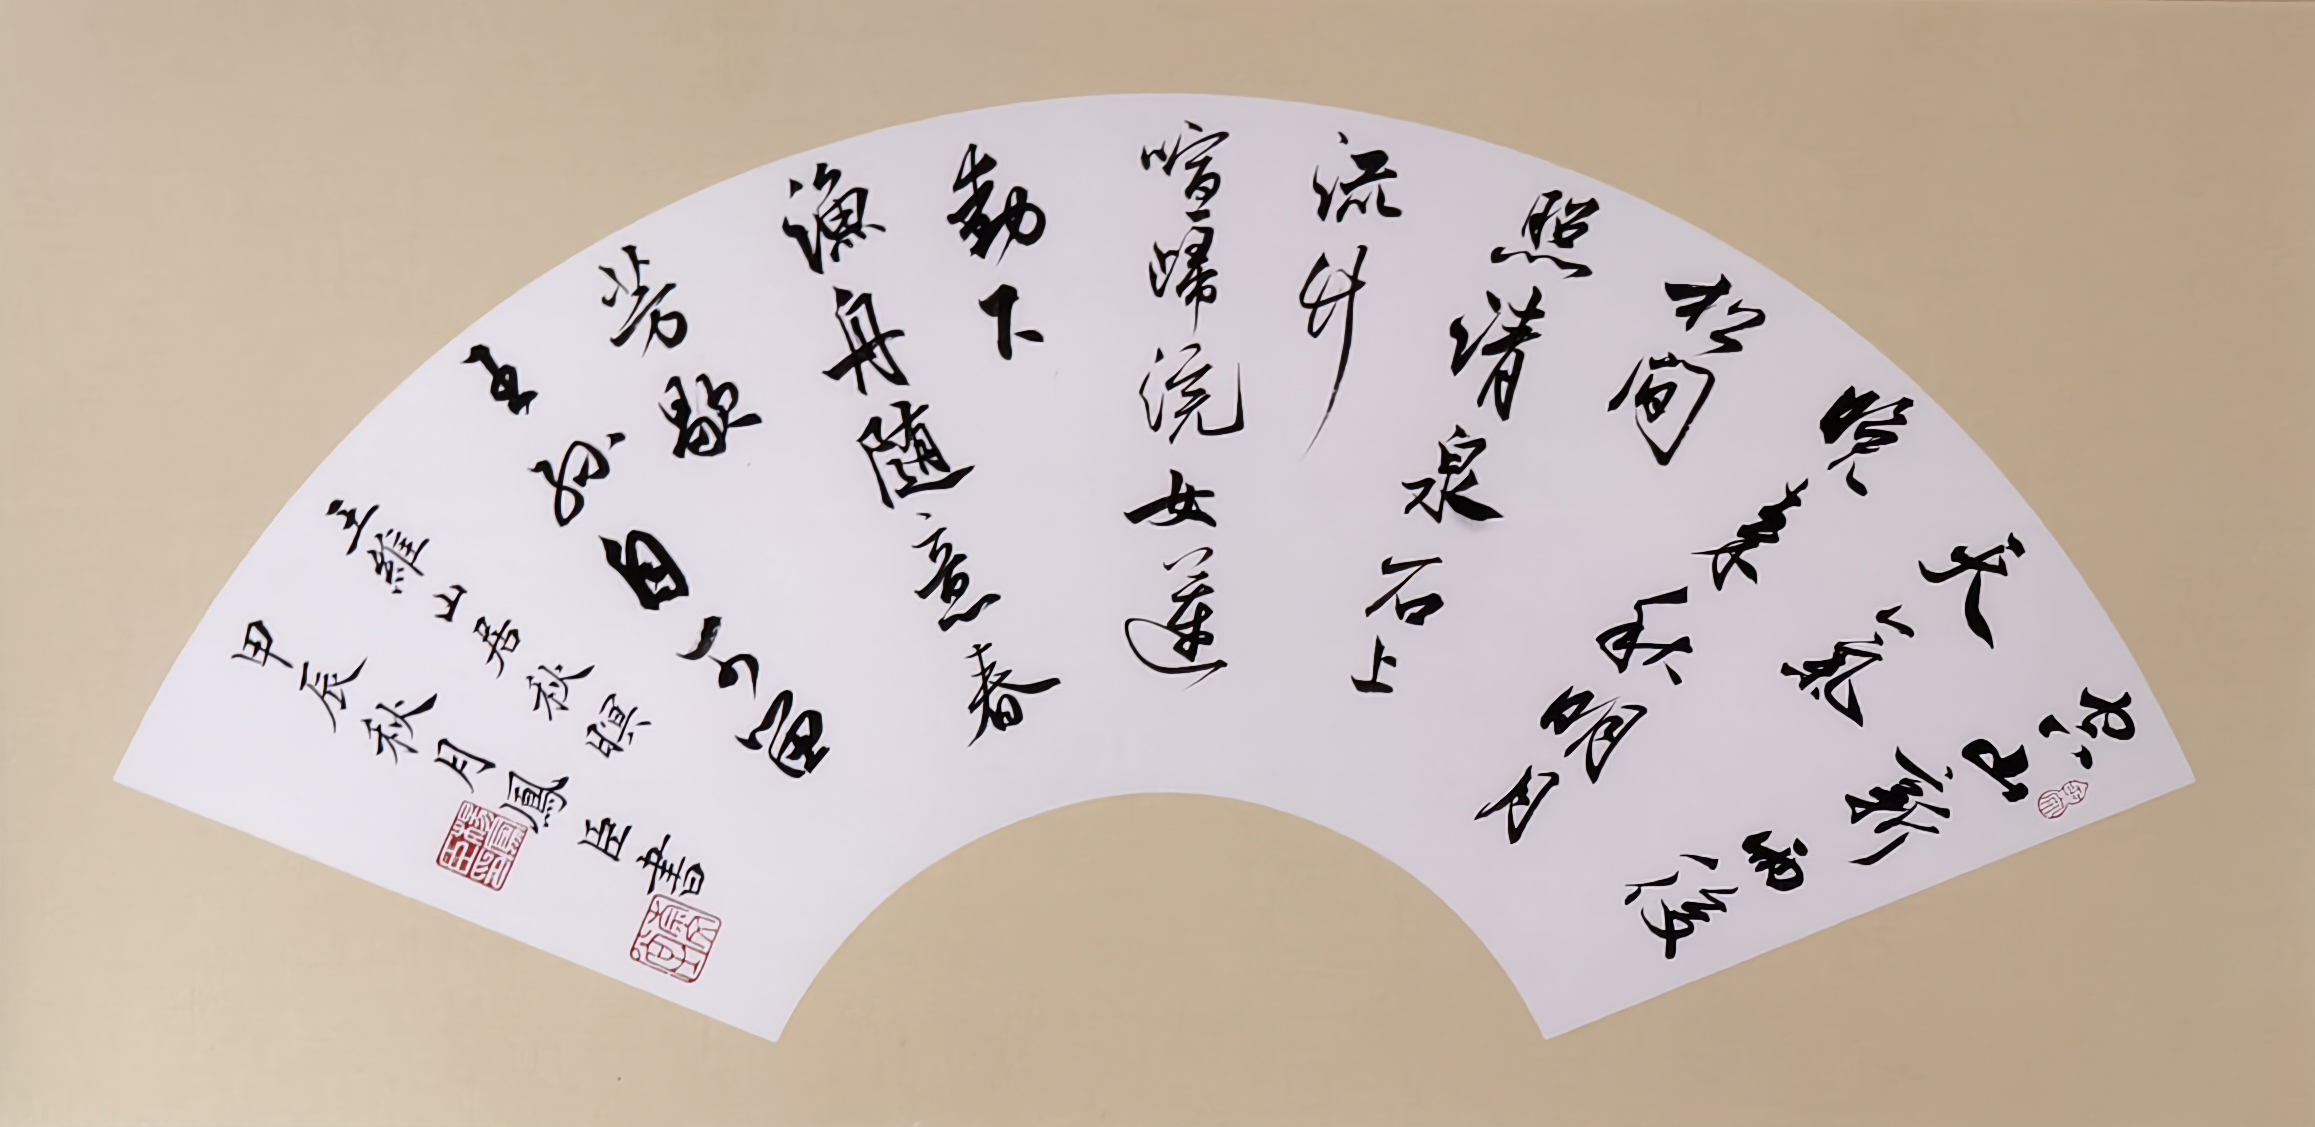 空山新雨後
天氣
晚來秋明月
松間
照清泉石上
流竹
喧歸浣女蓮
動下
漁舟隨意春
芳歇
王孫自可留
王維山居秋暝
甲辰秋月鳳臣書